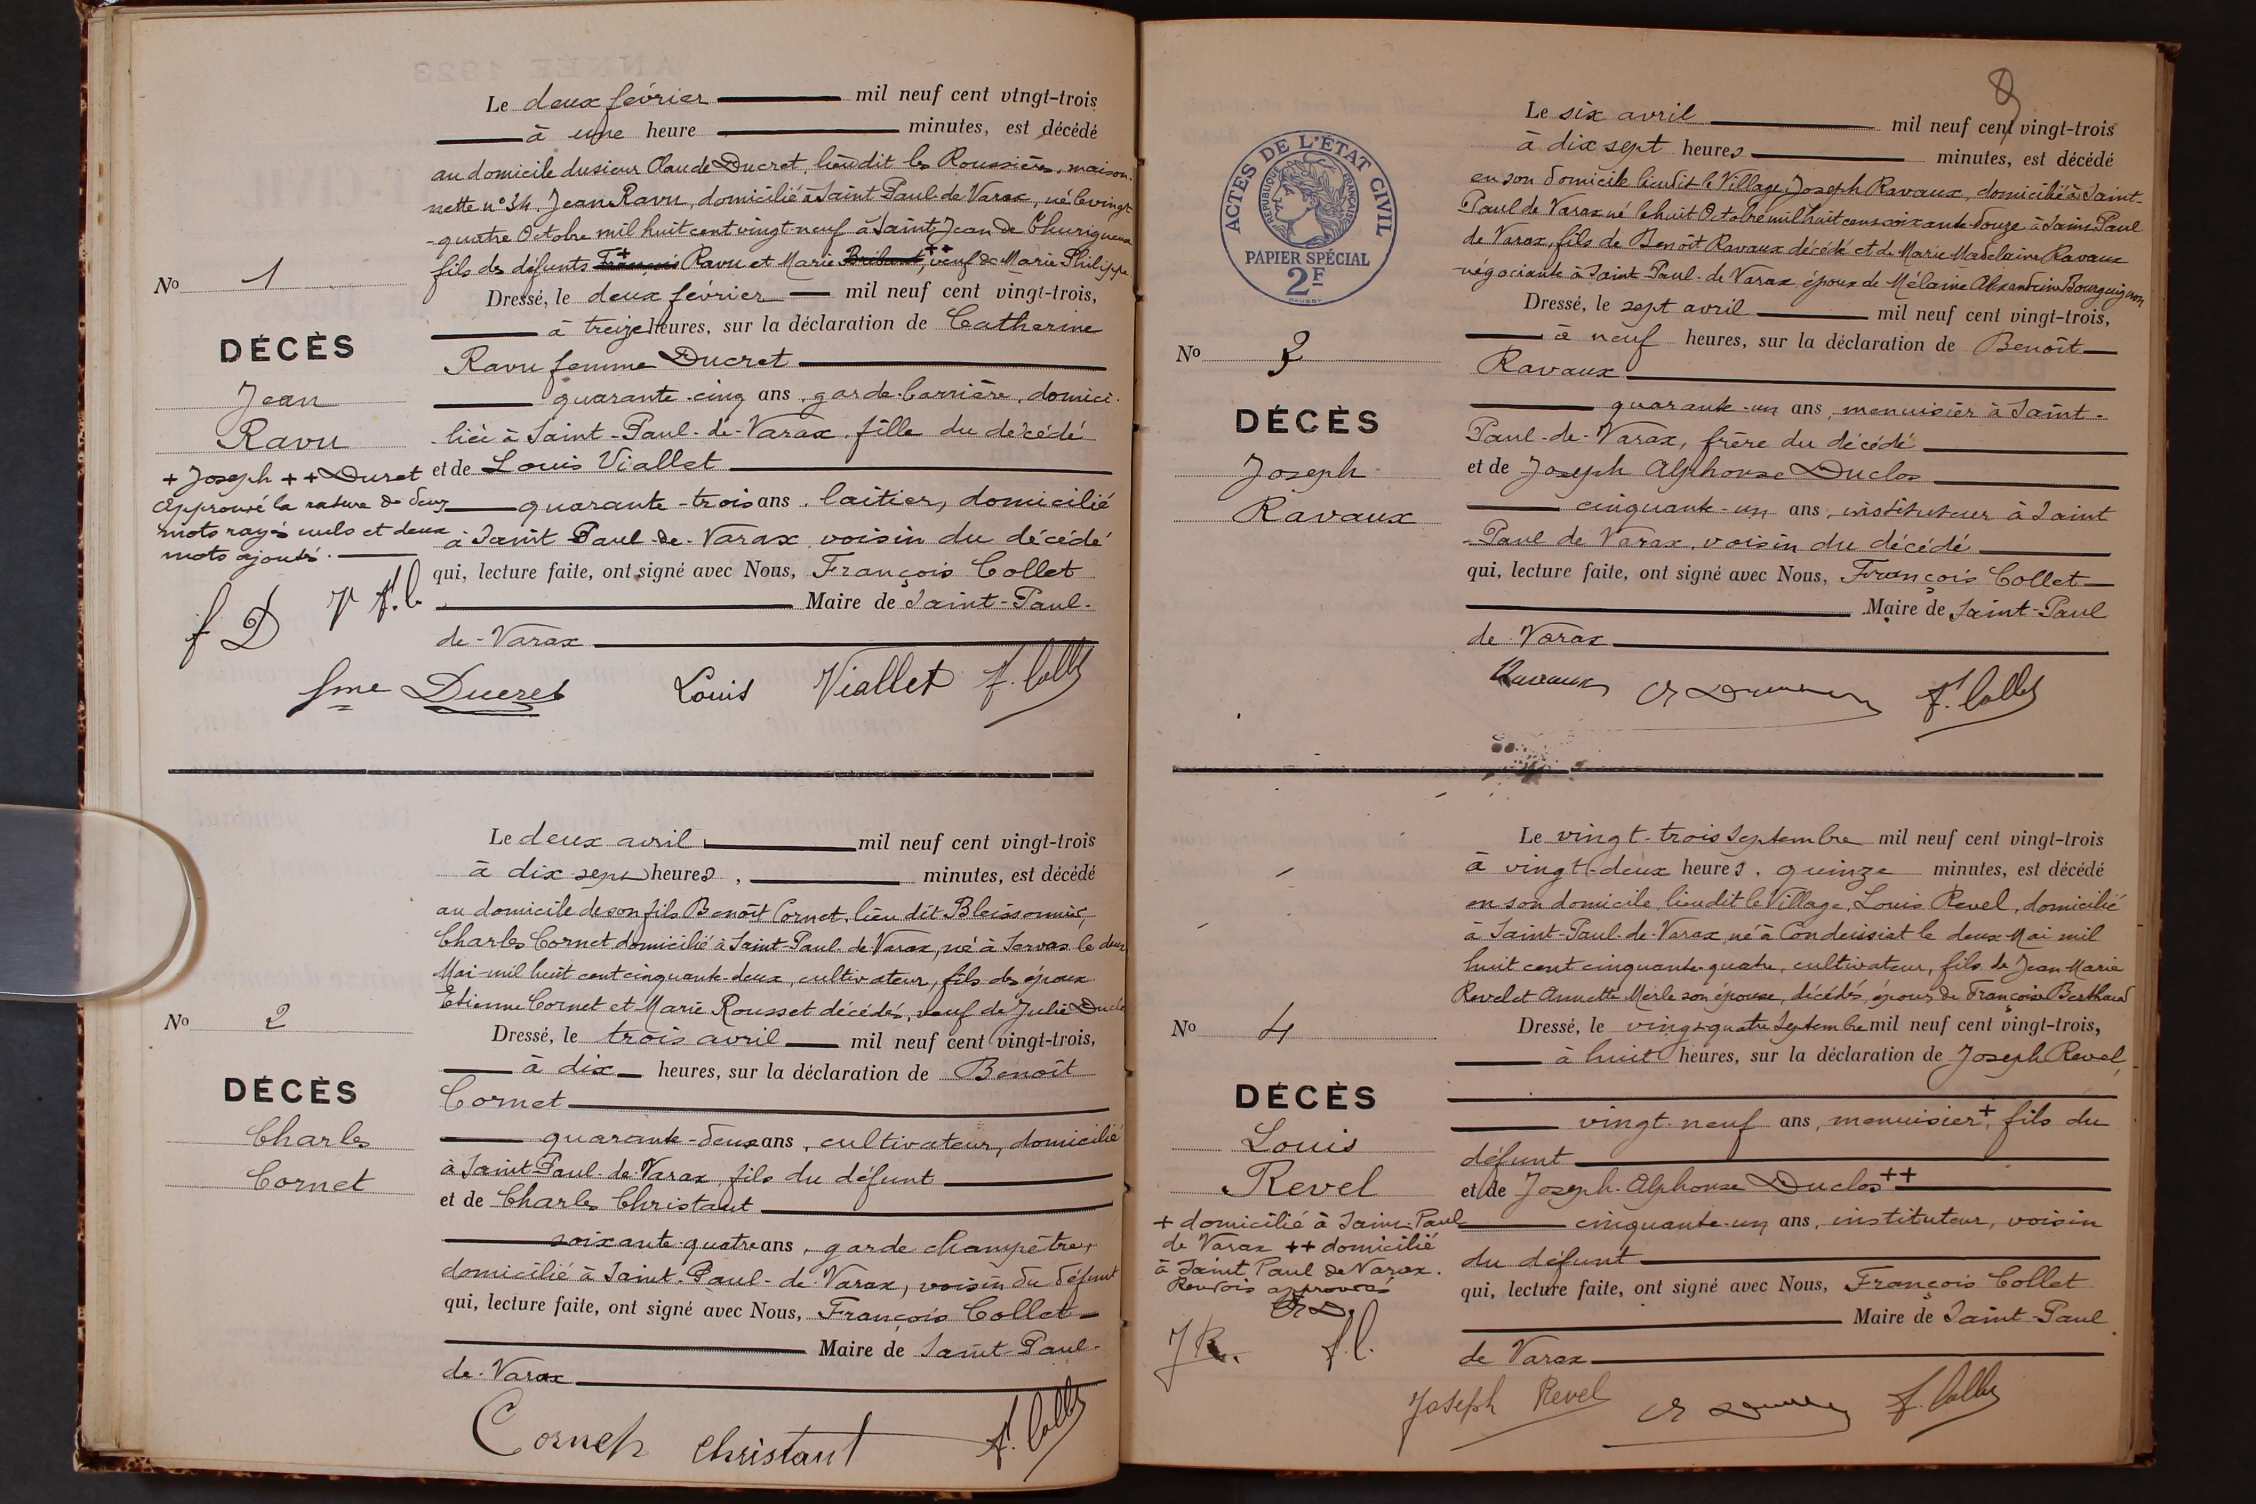 Le deux février mil neuf cent vingt-trois
à une heure minutes, est décédé
au domicile du sieur Claude Ducret, lieudit les Roussières, maison-
nette n° 34, Jean Ravu, domicilié à Saint Paul de Varax, né le vingt
-quatre Octobre mil huit cent vingt-neuf à Saint Jean de
fils des défunts François + Ravu et Marie ++, veuf de Marie Philippe
No 1
Dressé, le deux février mil neuf cent vingt-trois,
à treize heures, sur la déclaration de Catherine
DÉCÈS
Ravu femme Ducret
Jean
quarante-cinq ans, garde-barrière, domici-
Ravu
liée à Saint-Paul-de-Varax, fille du décédé
+ Joseph ++ Duret
et de Louis Viallet
Approuvé la rature de deux
quarante-trois ans, laitier, domicilié
mots rayés nuls et deux
à Saint Paul-de-Varax, voisin du décédé
mots ajoutés.
qui, lecture faite, ont signé avec Nous, François Collet
f D V f.C
Maire de Saint-Paul-
de-Varax
fme Ducret Louis Viallet F. Collet
Le deux avril mil neuf cent vingt-trois
à dix sept heures, minutes, est décédé
au domicile de son fils Benoît Cornet, lieu dit
Charles Cornet domicilié à Saint-Paul-de-Varax, né à Servas le deux
Mai mil huit cent cinquante-deux, cultivateur, fils des époux
Etienne Cornet et Marie Rousset décédés, veuf de Julie
No 2
Dressé, le trois avril mil neuf cent vingt-trois,
à dix heures, sur la déclaration de Benoît
DÉCÈS
Cornet
Charles
quarante-deux ans, cultivateur, domicilié
Cornet
à Saint Paul-de-Varax, fils du défunt
et de Charles Christaut
soixante-quatre ans, garde champêtre,
domicilié à Saint-Paul-de-Varax, voisin du défunt
qui, lecture faite, ont signé avec Nous, François Collet
Maire de Saint-Paul-
de-Varax
Cornet Christaut F. Collet
ACTES DE L'ÉTAT CIVIL
RÉPUBLIQUE FRANÇAISE
PAPIER SPÉCIAL
2F
Le six avril mil neuf cent vingt-trois
à dix sept heures minutes, est décédé
en son domicile lieudit le Village, Joseph Ravaux, domicilié à Saint-
Paul de Varax né le huit Octobre mil huit cent soixante-douze à Saint Paul
de Varax, fils de Benoît Ravaux décédé et de Marie Madelaine Ravaux
négociante à Saint-Paul-de-Varax, époux de Mélanie Alexandrine Bourguignon
Dressé, le sept avril mil neuf cent vingt-trois,
No 3
à neuf heures, sur la déclaration de Benoît
Ravaux
DÉCÈS
quarante-un ans, menuisier à Saint-
Joseph
Paul-de-Varax, frère du décédé
Ravaux
et de Joseph Alphonse Duclos
cinquante-un ans, instituteur à Saint
-Paul de Varax, voisin du décédé
qui, lecture faite, ont signé avec Nous, François Collet
Maire de Saint-Paul
de Varax
Ravaux F. Collet
Le vingt-trois Septembre mil neuf cent vingt-trois
à vingt-deux heures, quinze minutes, est décédé
en son domicile, lieudit le Village, Louis Revel, domicilié
à Saint-Paul-de-Varax, né à Condeissiat le deux Mai mil
huit cent cinquante-quatre, cultivateur, fils de Jean Marie
Revel et Annette Merle son épouse, décédés, époux de Françoise Berthaud
No 4
Dressé, le vingt-quatre Septembre mil neuf cent vingt-trois,
à huit heures, sur la déclaration de Joseph Revel,
DÉCÈS
vingt-neuf ans, menuisier +, fils du
Louis
défunt
Revel
et de Joseph-Alphonse Duclos ++
+ domicilié à Saint-Paul
cinquante-un ans, instituteur, voisin
de Varax ++ domicilié
du défunt
à Saint Paul de Varax.
Renvois approuvés
qui, lecture faite, ont signé avec Nous, François Collet
J R. f.C.
Maire de Saint-Paul
de Varax
Joseph Revel F. Collet